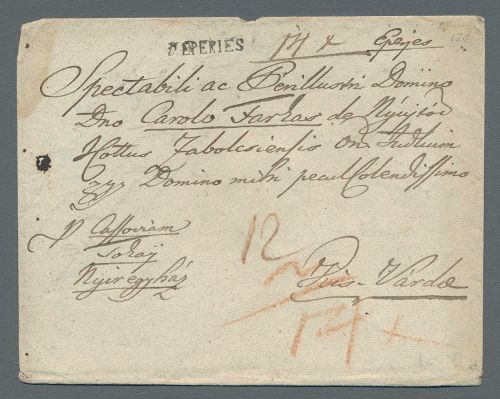 EPERIES
14 x Eperjes
Spectabili ac Perillustri Domino
Dno Carolo Farkas de Nyújtód
Cottus Zabolcsiensis
Domino mihi peculColendissimo
p Cassoviam
Tokaj
Nyiregyház
12
Kis-Várda
14 x